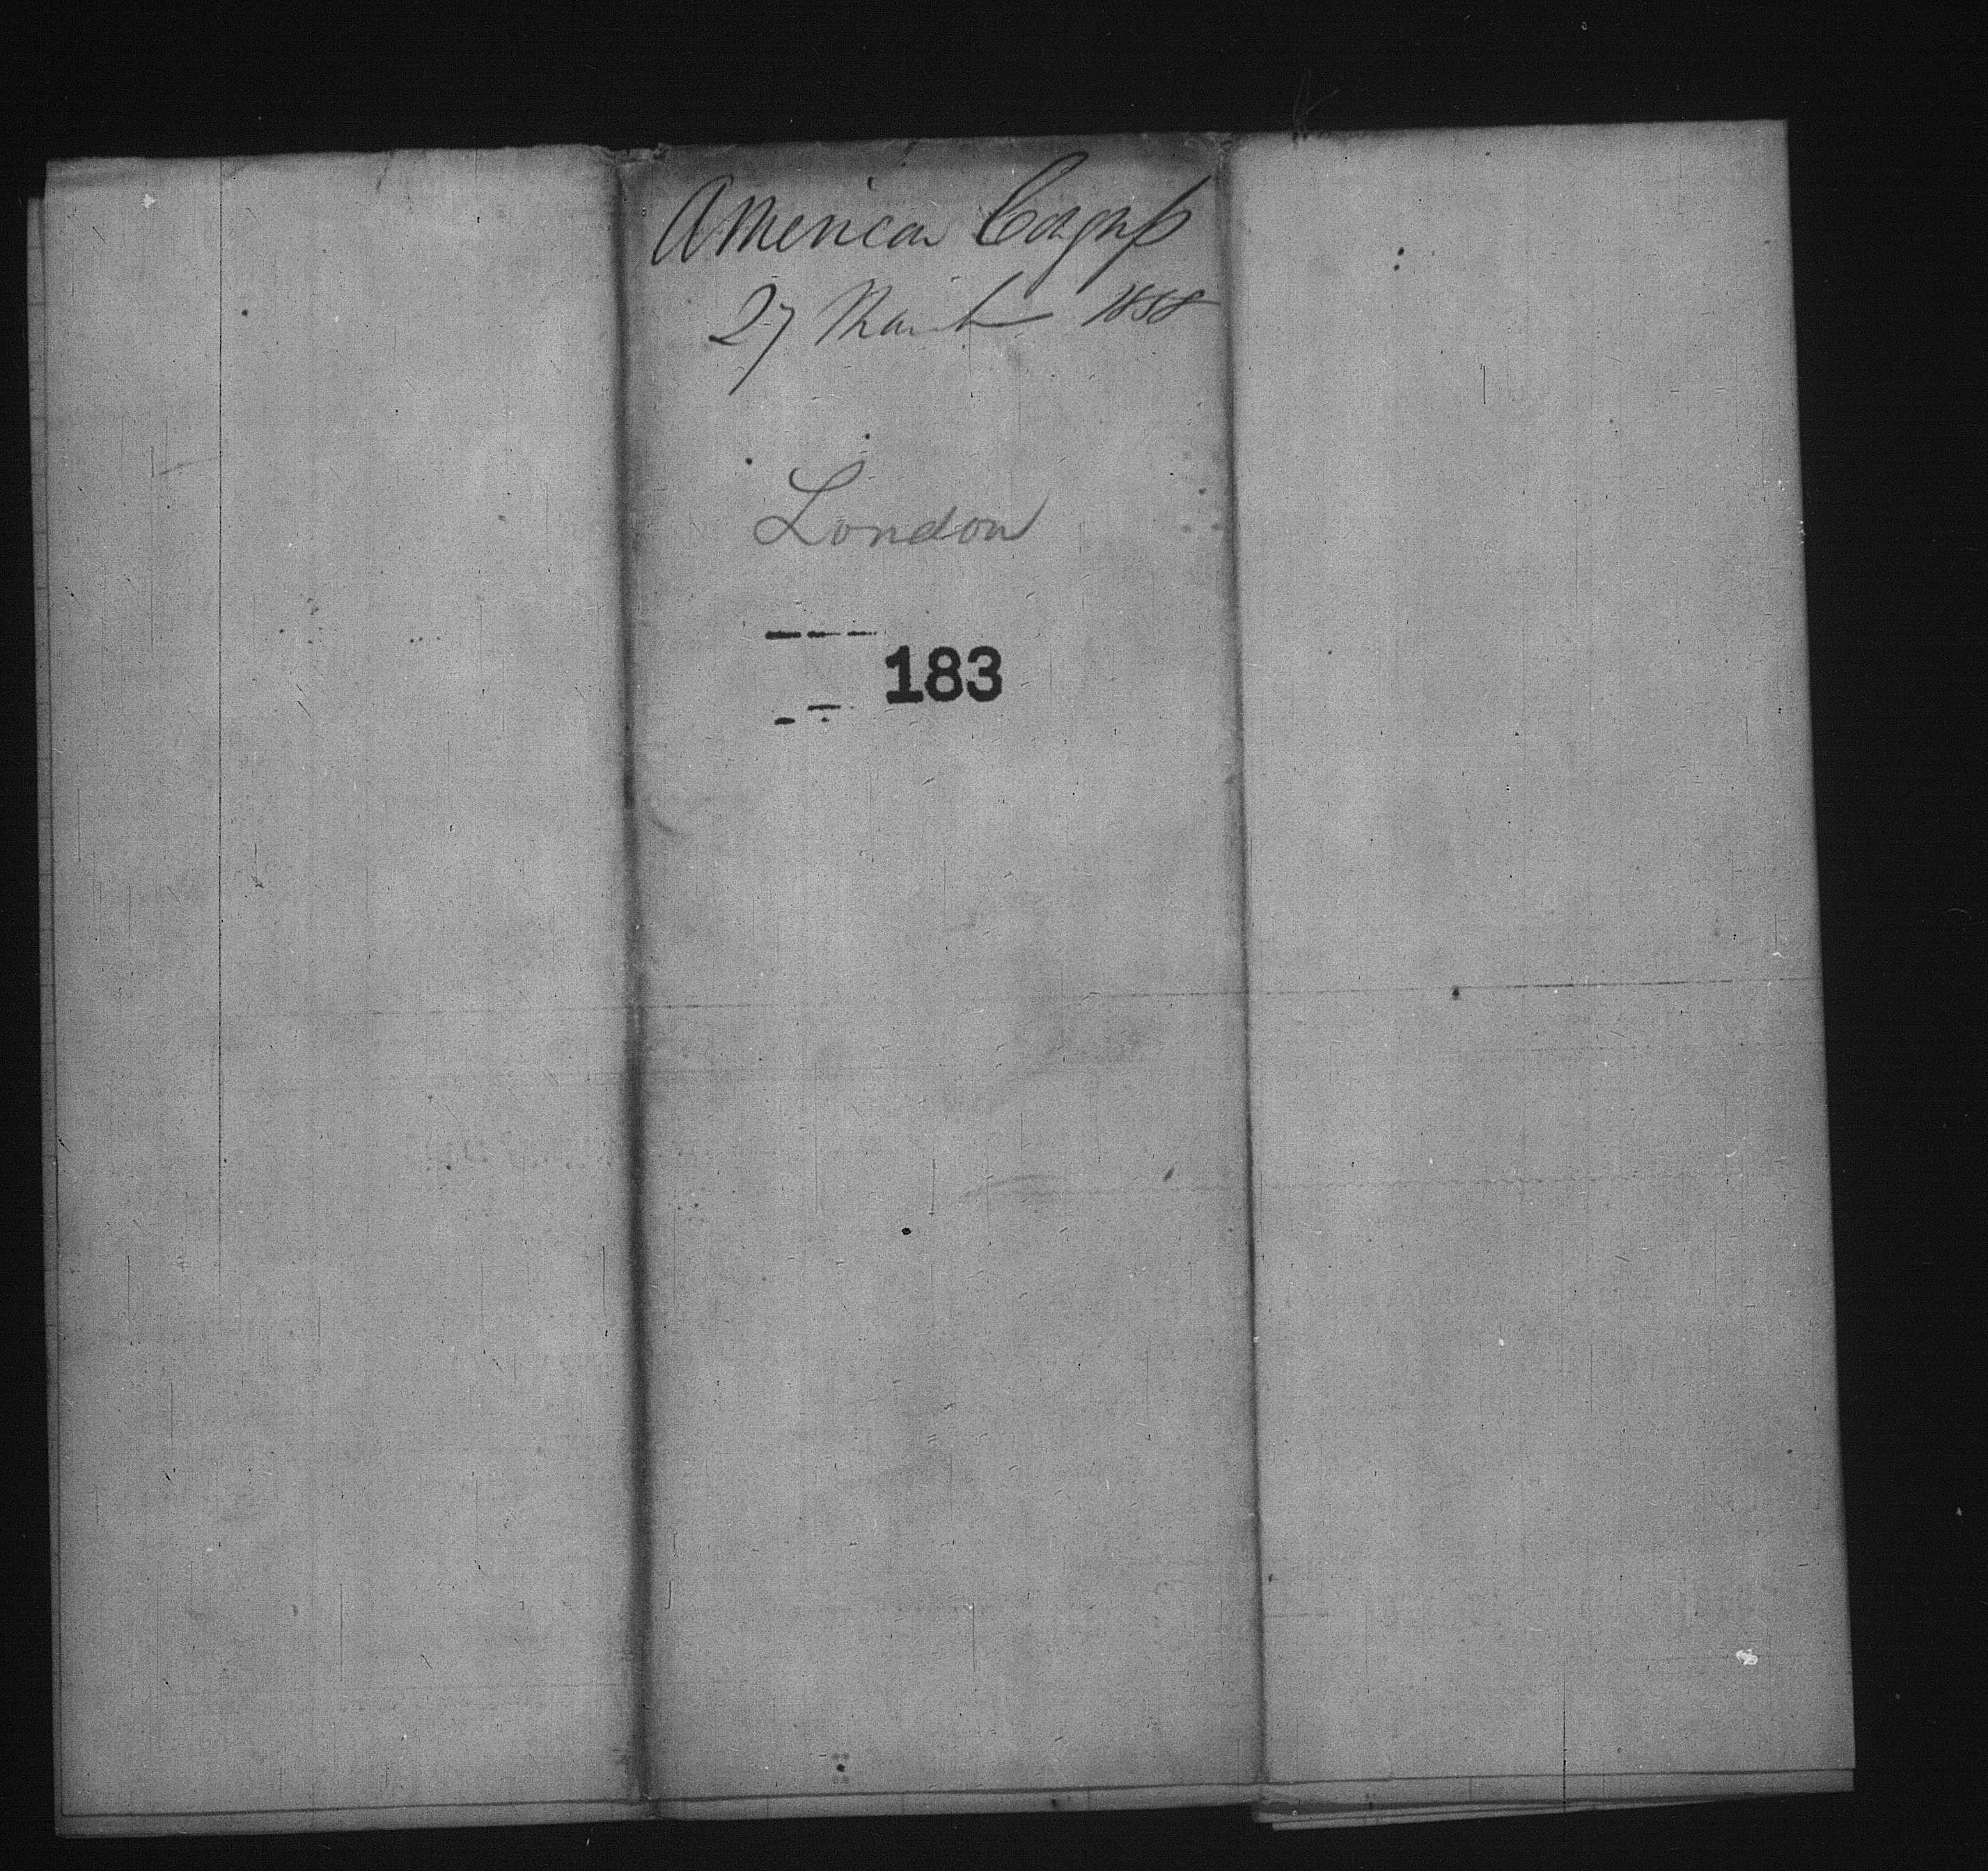 American
27 March 1888
London
183